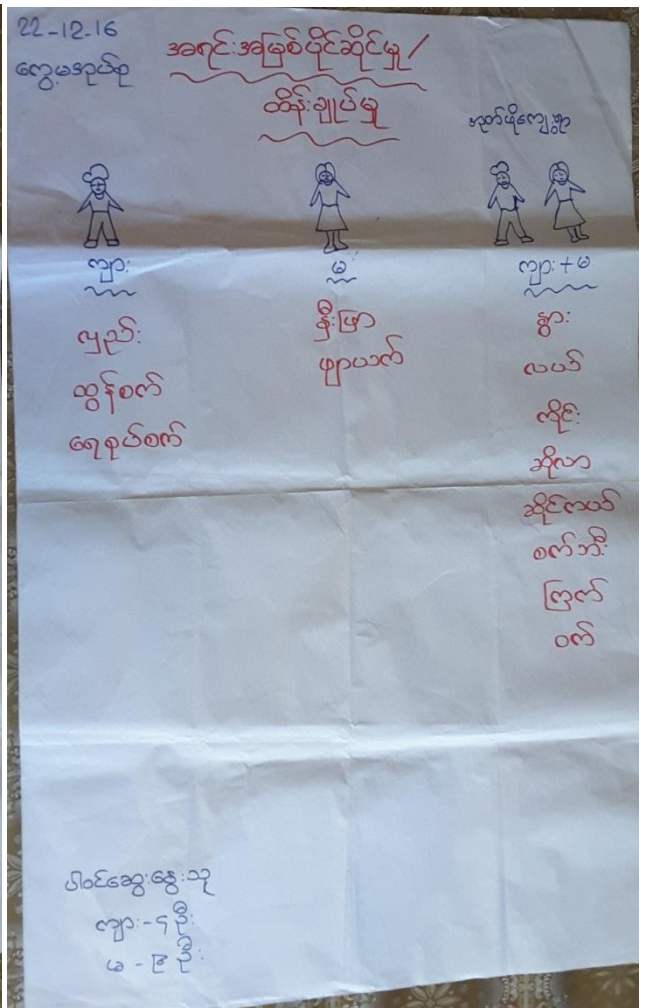 22-12-16
ကွေ့မအုပ်စု
အရင်းအမြစ်ပိုင်ဆိုင်မှု/
ထိန်းချုပ်မှု
အုတ်ဖိုကျေးရွာ
ကျား
မ
ကျား+မ
လှည်း
ထွန်စက်
ရေစုပ်စက်
နှီးဖြာ
ဖျာယက်
နွား
လယ်
ကိုင်း
ဆိုလာ
ဆိုင်ကယ်
စက်ဘီး
ကြက်
ဝက်
ပါဝင်ဆွေးနွေးသူ
ကျား-၄ဦး
မ-၉ဦး